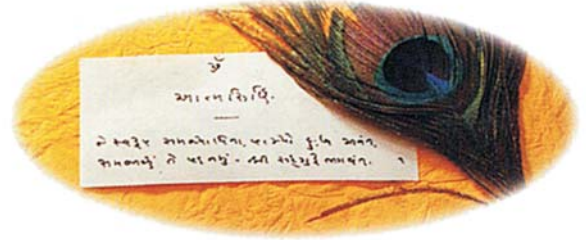 ૐ
આત્મસિદ્ધિ.
જે સ્વરૂપ સમજ્યા વિના, પામ્યો દુઃખ અનંત,
સમજાવ્યું તે પદ નમું - શ્રી સદ્ગુરુ ભગવંત. ૧